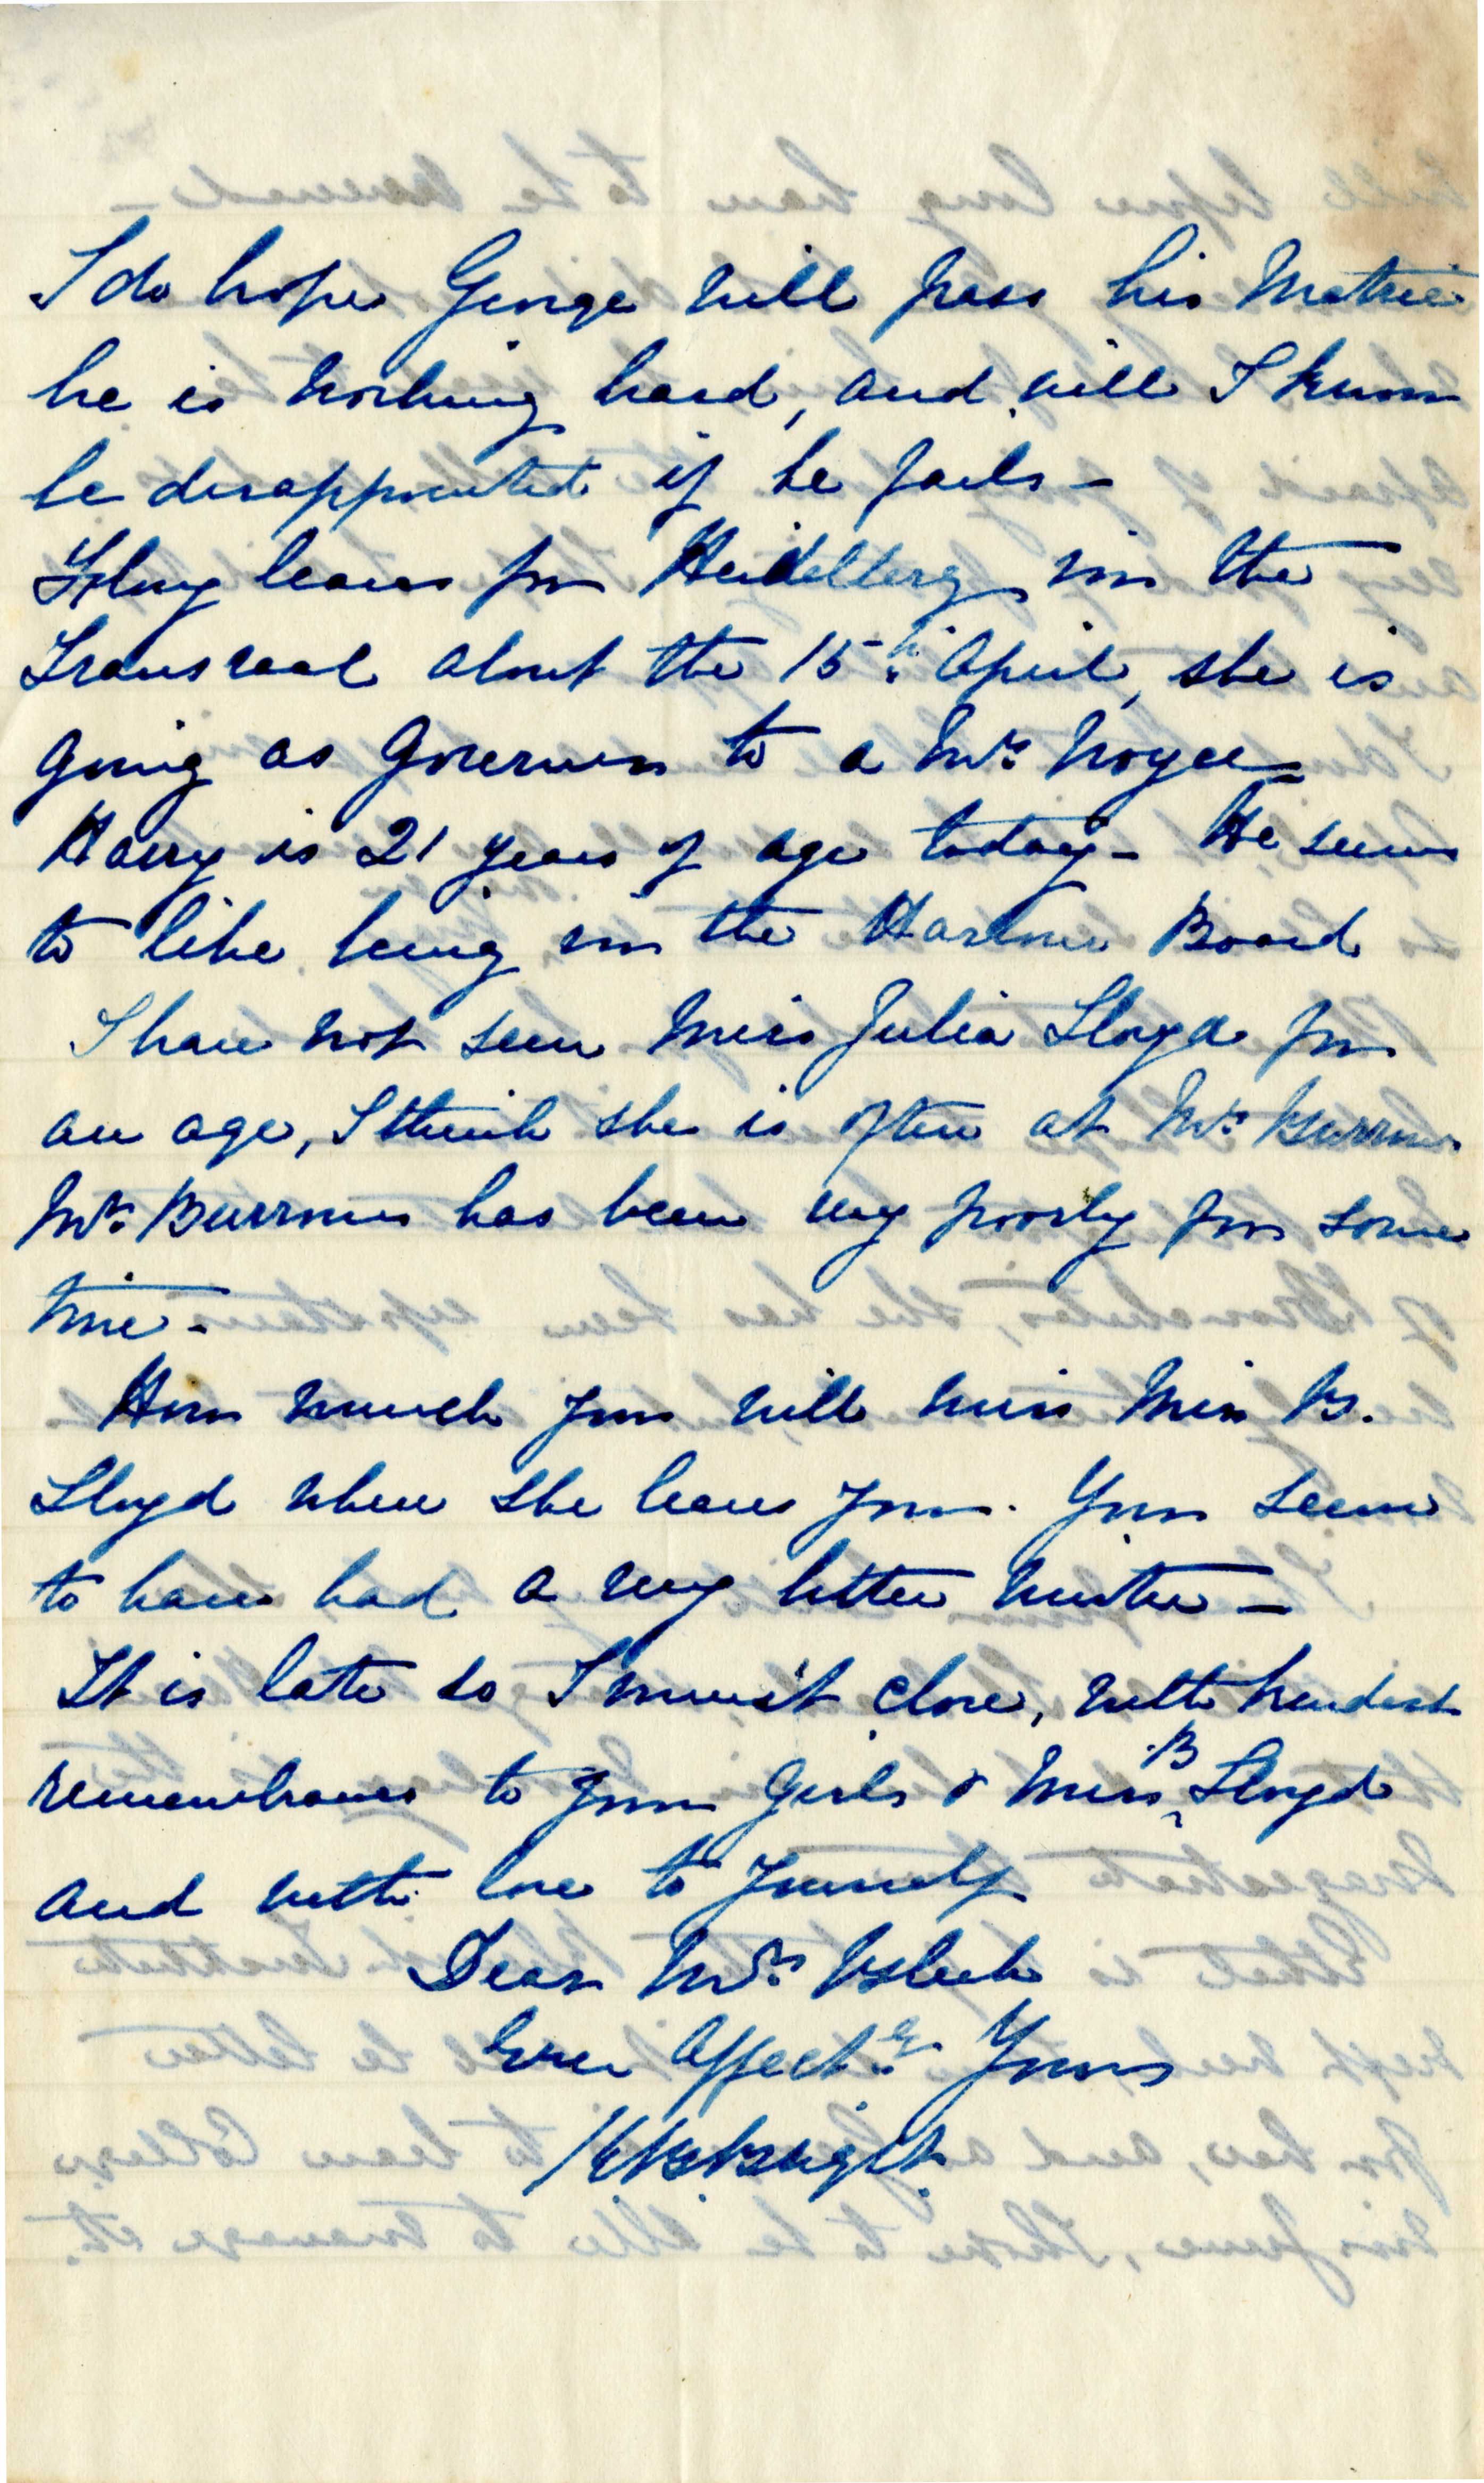 I do hope George will pass his Matric
he is working hard, and will I know
be disappointed if he fails –
leaves for Heidelberg in the
Transvaal about the 15th April, she is
going as Governess to a Mrs Noyce –
Harry is 21 years of age today – He seems
to like being in the Harbour Board
I have not seen Miss Julia Lloyd for
an age, I think she is often at Mrs Burrows
Mrs Burrows has been very poorly for some
time –
How much you will miss Miss B.
Lloyd when she leaves you. You seem
to have had a very bitter winter –
It is late so I must close, with kindest
remembrances to your Girls & Miss B Lloyd
and with love to yourself
Dear Mrs Bleek
Ever Affectly Yours
Bright.